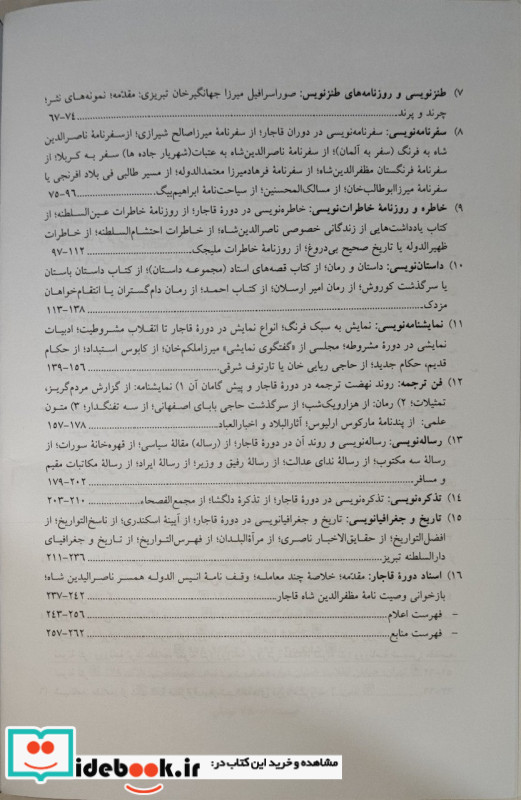 ۷) طنزنویسی و روزنامه‌های طنزنویس: صوراسرافیل میرزا جهانگیرخان تبریزی: مقدّمه؛ نمونه‌های نثر؛
چرند و پرند ........ ۶۷-۷۴
۸) سفرنامه‌نویسی: سفرنامه‌نویسی در دوران قاجار؛ از سفرنامهٔ میرزاصالح شیرازی؛ ازسفرنامهٔ ناصرالدین
شاه به فرنگ (سفر به آلمان)؛ از سفرنامهٔ ناصرالدین‌شاه به عتبات(شهریار جاده ها) سفر به کربلا؛ از
سفرنامهٔ فرنگستان مظفرالدین‌شاه؛ از سفرنامهٔ فرهادمیرزا معتمدالدوله؛ از مسیر طالبی فی بلاد افرنجی یا
سفرنامهٔ میرزاابوطالب‌خان؛ از مسالک‌المحسنین؛ از سیاحت‌نامهٔ ابراهیم‌بیگ ........ ۷۵-۹۶
۹) خاطره و روزنامهٔ خاطرات‌نویسی: خاطره‌نویسی در دورهٔ قاجار؛ از روزنامهٔ خاطرات عین‌السلطنه؛ از
کتاب یادداشت‌هایی از زندگانی خصوصی ناصرالدین‌شاه؛ از خاطرات احتشام‌السلطنه؛ از خاطرات
ظهیرالدوله یا تاریخ صحیح بی‌دروغ؛ از روزنامهٔ خاطرات ملیجک ........ ۹۷-۱۱۲
۱۰) داستان‌نویسی: داستان و رمان؛ از کتاب قصه‌های استاد (مجموعه داستان)؛ از کتاب داستان باستان
یا سرگذشت کوروش؛ از رمان امیر ارسلان؛ از کتاب احمد؛ از رمان دام‌گستران یا انتقام‌خواهان
مزدک ........ ۱۱۳-۱۳۸
۱۱) نمایشنامه‌نویسی: نمایش به سبک فرنگ؛ انواع نمایش در دورهٔ قاجار تا انقلاب مشروطیت؛ ادبیات
نمایشی در دورهٔ مشروطه؛ مجلسی از «گفتگوی نمایشی» میرزاملکم‌خان؛ از کابوس استبداد؛ از حکام
قدیم، حکام جدید؛ از حاجی ریایی خان یا تارتوف شرقی ........ ۱۳۹-۱۵۶
۱۲) فن ترجمه: روند نهضت ترجمه در دورهٔ قاجار و پیش گامان آن ۱) نمایشنامه: از گزارش مردم‌گریز،
تمثیلات؛ ۲) رمان: از هزارویک‌شب؛ از سرگذشت حاجی بابای اصفهانی؛ از سه تفنگدار؛ ۳) متون
علمی: از پندنامهٔ مارکوس ارلیوس؛ آثارالبلاد و اخبارالعباد ........ ۱۵۷-۱۷۸
۱۳) رساله‌نویسی: رساله‌نویسی و روند آن در دورهٔ قاجار؛ از (رساله) مقالهٔ سیاسی؛ از قهوه‌خانهٔ سورات؛ از
رسالهٔ سه مکتوب؛ از رسالهٔ ندای عدالت؛ از رسالهٔ رفیق و وزیر؛ از رسالهٔ ایراد؛ از رسالهٔ مکاتبات مقیم
و مسافر ........ ۱۷۹-۲۰۲
۱۴) تذکره‌نویسی: تذکره‌نویسی در دورهٔ قاجار؛ از تذکرهٔ دلگشا؛ از مجمع‌الفصحاء ........ ۲۰۳-۲۱۰
۱۵) تاریخ و جغرافیانویسی: تاریخ و جغرافیانویسی در دورهٔ قاجار؛ از آیینهٔ اسکندری؛ از ناسخ‌التواریخ؛ از
افضل‌التواریخ؛ از حقایق‌الاخبار ناصری؛ از مرآة‌البلدان؛ از فهرس‌التواریخ؛ از تاریخ و جغرافیای
دارالسلطنه تبریز ........ ۲۱۱-۲۳۶
۱۶) اسناد دورهٔ قاجار: مقدّمه؛ خلاصهٔ چند معامله؛ وقف نامهٔ انیس الدوله همسر ناصرالیدین شاه؛
بازخوانی وصیت نامهٔ مظفرالدین شاه قاجار ........ ۲۳۷-۲۴۲
– فهرست اعلام ........ ۲۴۳-۲۵۶
– فهرست منابع ........ ۲۵۷-۲۶۲
مشاهده و خرید این کتاب در:
idebook.ir